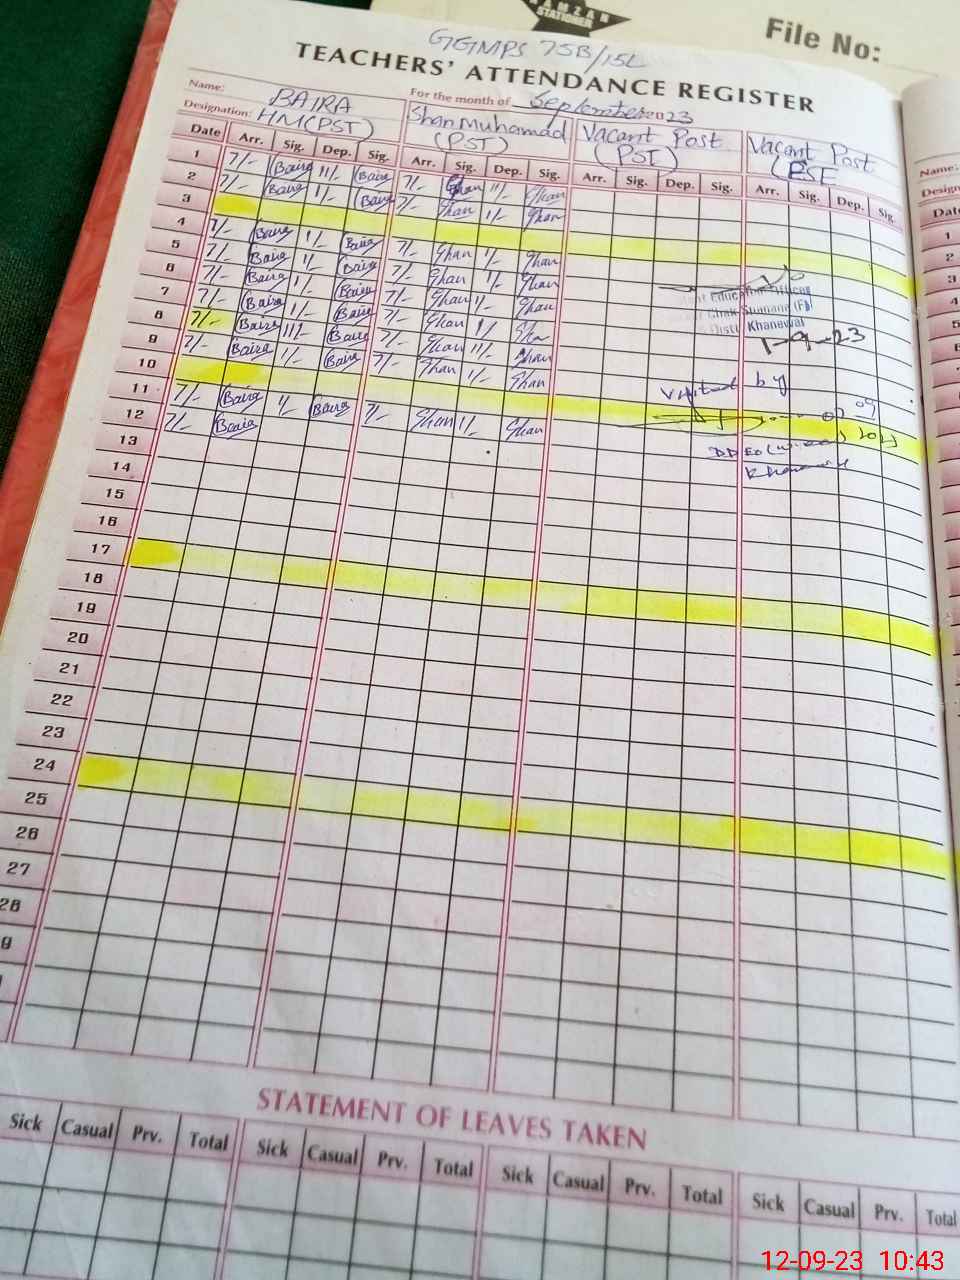 RAMZAN
STATIONER
File No:
GGMPS 75B/15L
TEACHERS' ATTENDANCE REGISTER
Name: For the month of September 2023
BAIRA Shan Muhamad Vacant Post Vacant Post
Designation: HM(PST) (PST) (PST)
Date Arr. Sig. Dep. Sig. Arr. Sig. Dep. Sig. Arr. Sig. Dep. Sig. Arr. Sig. Dep. Sig.
1 7/- Baira 11/- Baira 7/- Shan 11/- Shan
2 7/- Baira 1/- Baira 7/- Shan 1/- Shan
3
4 7/- Baira 1/- Baira 7/- Shan 1/- Shan
5 7/- Baira 1/- Baira 7/- Shan 1/- Shan
6 7/- Baira 1/- Baira 7/- Shan 1/- Shan
7 7/- Baira 1/- Baira 7/- Shan 1/- Shan
8 7/- Baira 11/- Baira 7/- Shan 11/- Shan
9 7/- Baira 1/- Baira 7/- Shan 1/- Shan
10
11 7/- Baira 1/- Baira 7/- Shan 11/- Shan
12 7/- Baira
13
14
15
16
17
18
19
20
21
22
23
24
25
26
27
28
9
Education Officer
Distt. Khanewal
1-9-23
Visited by
STATEMENT OF LEAVES TAKEN
Sick Casual Prv. Total Sick Casual Prv. Total Sick Casual Prv. Total Sick Casual Prv. Total
Name:
Date
1
2
3
4
5
12-09-23 10:43